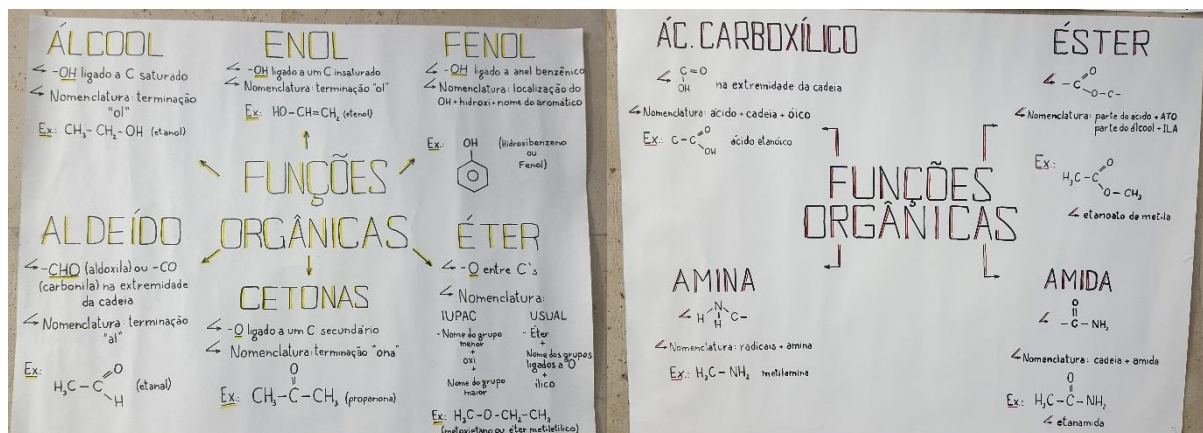 ÁLCOOL
-OH ligado a C saturado
Nomenclatura: terminação
"ol"
Ex: CH₃-CH₂-OH (etanol)
ENOL
-OH ligado a um C insaturado
Nomenclatura: terminação "ol"
Ex: HO-CH=CH₂ (etenol)
FENOL
-OH ligado a anel benzênico
Nomenclatura: localização do
OH + hidroxi + nome do aromático
Ex:
OH
(Hidroxibenzeno
ou
Fenol)
FUNÇÕES
ORGÂNICAS
ALDEÍDO
-CHO (aldoxila) ou -CO
(carbonila) na extremidade
da cadeia
Nomenclatura: terminação
"al"
Ex:
O
H₃C-C
H
(etanal)
CETONAS
-O ligado a um C secundário
Nomenclatura: terminação "ona"
O
Ex: CH₃-C-CH₃ (propanona)
ÉTER
-O entre C's
Nomenclatura:
IUPAC
-Nome do grupo
menor
+
oxi
+
Nome do grupo
maior
USUAL
- Éter
+
Nome dos grupos
ligados a O
+
ílico
Ex: H₃C-O-CH₂-CH₃
(metoxietano ou éter metiletílico)
ÁC. CARBOXÍLICO
C=O
OH
na extremidade da cadeia
Nomenclatura: ácido + cadeia + óico
Ex: C-C
O
OH
ácido etanóico
ÉSTER
O
-C
O-C-
Nomenclatura: parte do ácido + ATO
parte do álcool + ILA
Ex:
O
H₃C-C
O-CH₃
etanoato de metila
FUNÇÕES
ORGÂNICAS
AMINA
H N C-
H
Nomenclatura: radicais + amina
Ex.: H₃C-NH₂ metilamina
AMIDA
O
-C-NH₂
Nomenclatura: cadeia + amida
O
Ex: H₃C-C-NH₂
etanamida